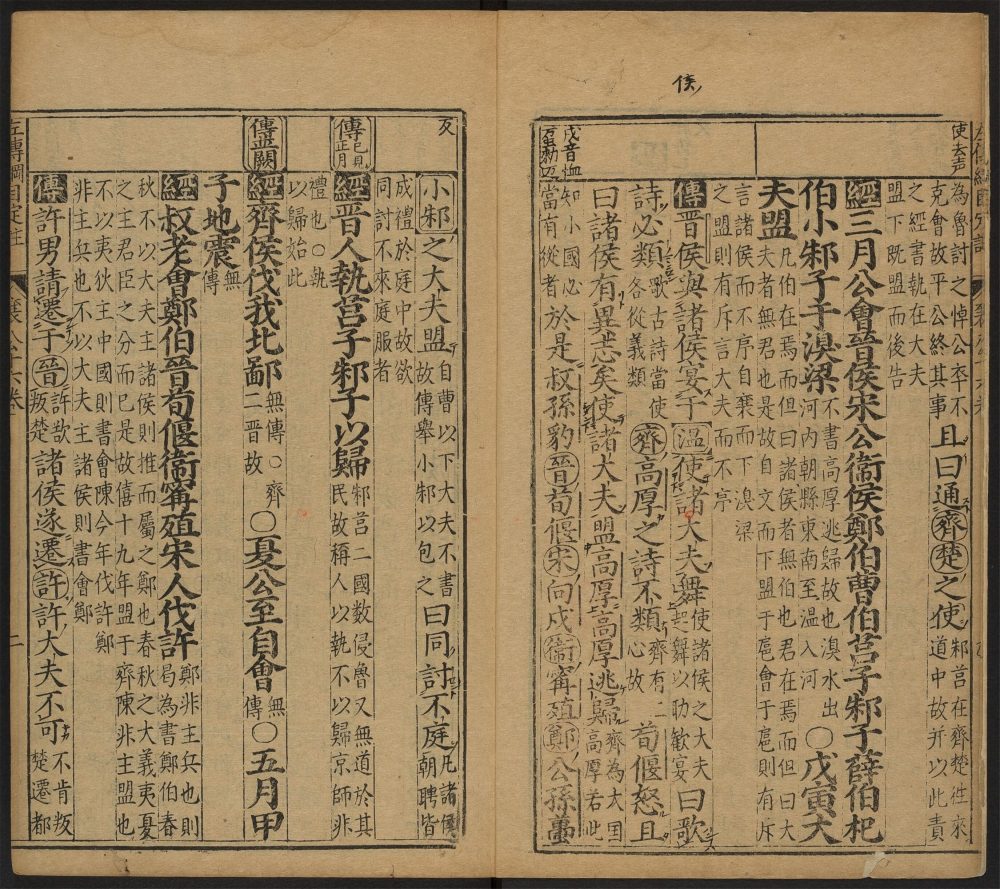 侯
使去声
為魯討之悼公卒不
克會故平公終其事
且曰通齊楚之使
邾莒在齊楚往來
道中故并以此責
之經書執在大夫
盟下既盟而後告
經三月公會晉侯宋公衞侯鄭伯曹伯莒子邾子薛伯杞
伯小邾子于湨梁
不書高厚逃歸故也湨水出
河内軹縣東南至温入河
○戊寅大
夫盟
凡伯在焉而但曰諸侯者無伯也君在焉而但曰大
夫者無君也是故自文而下盟于扈會于扈則有斥
言諸侯而不序自襄而下湨梁
之盟則有斥言大夫而不序
傳晉侯與諸侯宴于温使諸大夫舞
使諸侯之大夫
起舞以助歡宴
曰歌
詩必類
歌古詩當使
各從義類
齊高厚之詩不類
齊有二
心故
荀偃怒且
曰諸侯有異志矣使諸大夫盟高厚高厚逃歸
齊為大国
高厚若此
戌音恤
知小國必
當有從者
於是叔孫豹晉荀偃宋向戌衞寗殖鄭公孫蠆
小邾之大夫盟
自曹以下大夫不書
故傳舉小邾以包之
曰同討不庭
凡諸侯
朝聘皆
成禮於庭中故欲
同討不來庭服者
傳
正月
經晉人執莒子邾子以歸
邾莒二國数侵魯又無道於其
民故稱人以執不以歸京師非
禮也○執
以歸始此
傳並闕
經齊侯伐我北鄙
無傳○齊
二晉故
○夏公至自會
無
傳
○五月甲
子地震
無
傳
經叔老會鄭伯晉荀偃衞寗殖宋人伐許
鄭非主兵也則
曷為書鄭伯春
秋不以大夫主諸侯則推而屬之鄭也春秋之大義夷夏
之主君臣之分而已是故僖十九年盟于齊陳非主盟也
不以夷狄主中國則書會陳今年伐許鄭
非主兵也不以大夫主諸侯則書會鄭
傳許男請遷于晉
許欲
叛楚
諸侯遂遷許許大夫不可
不肯叛
楚遷都
二